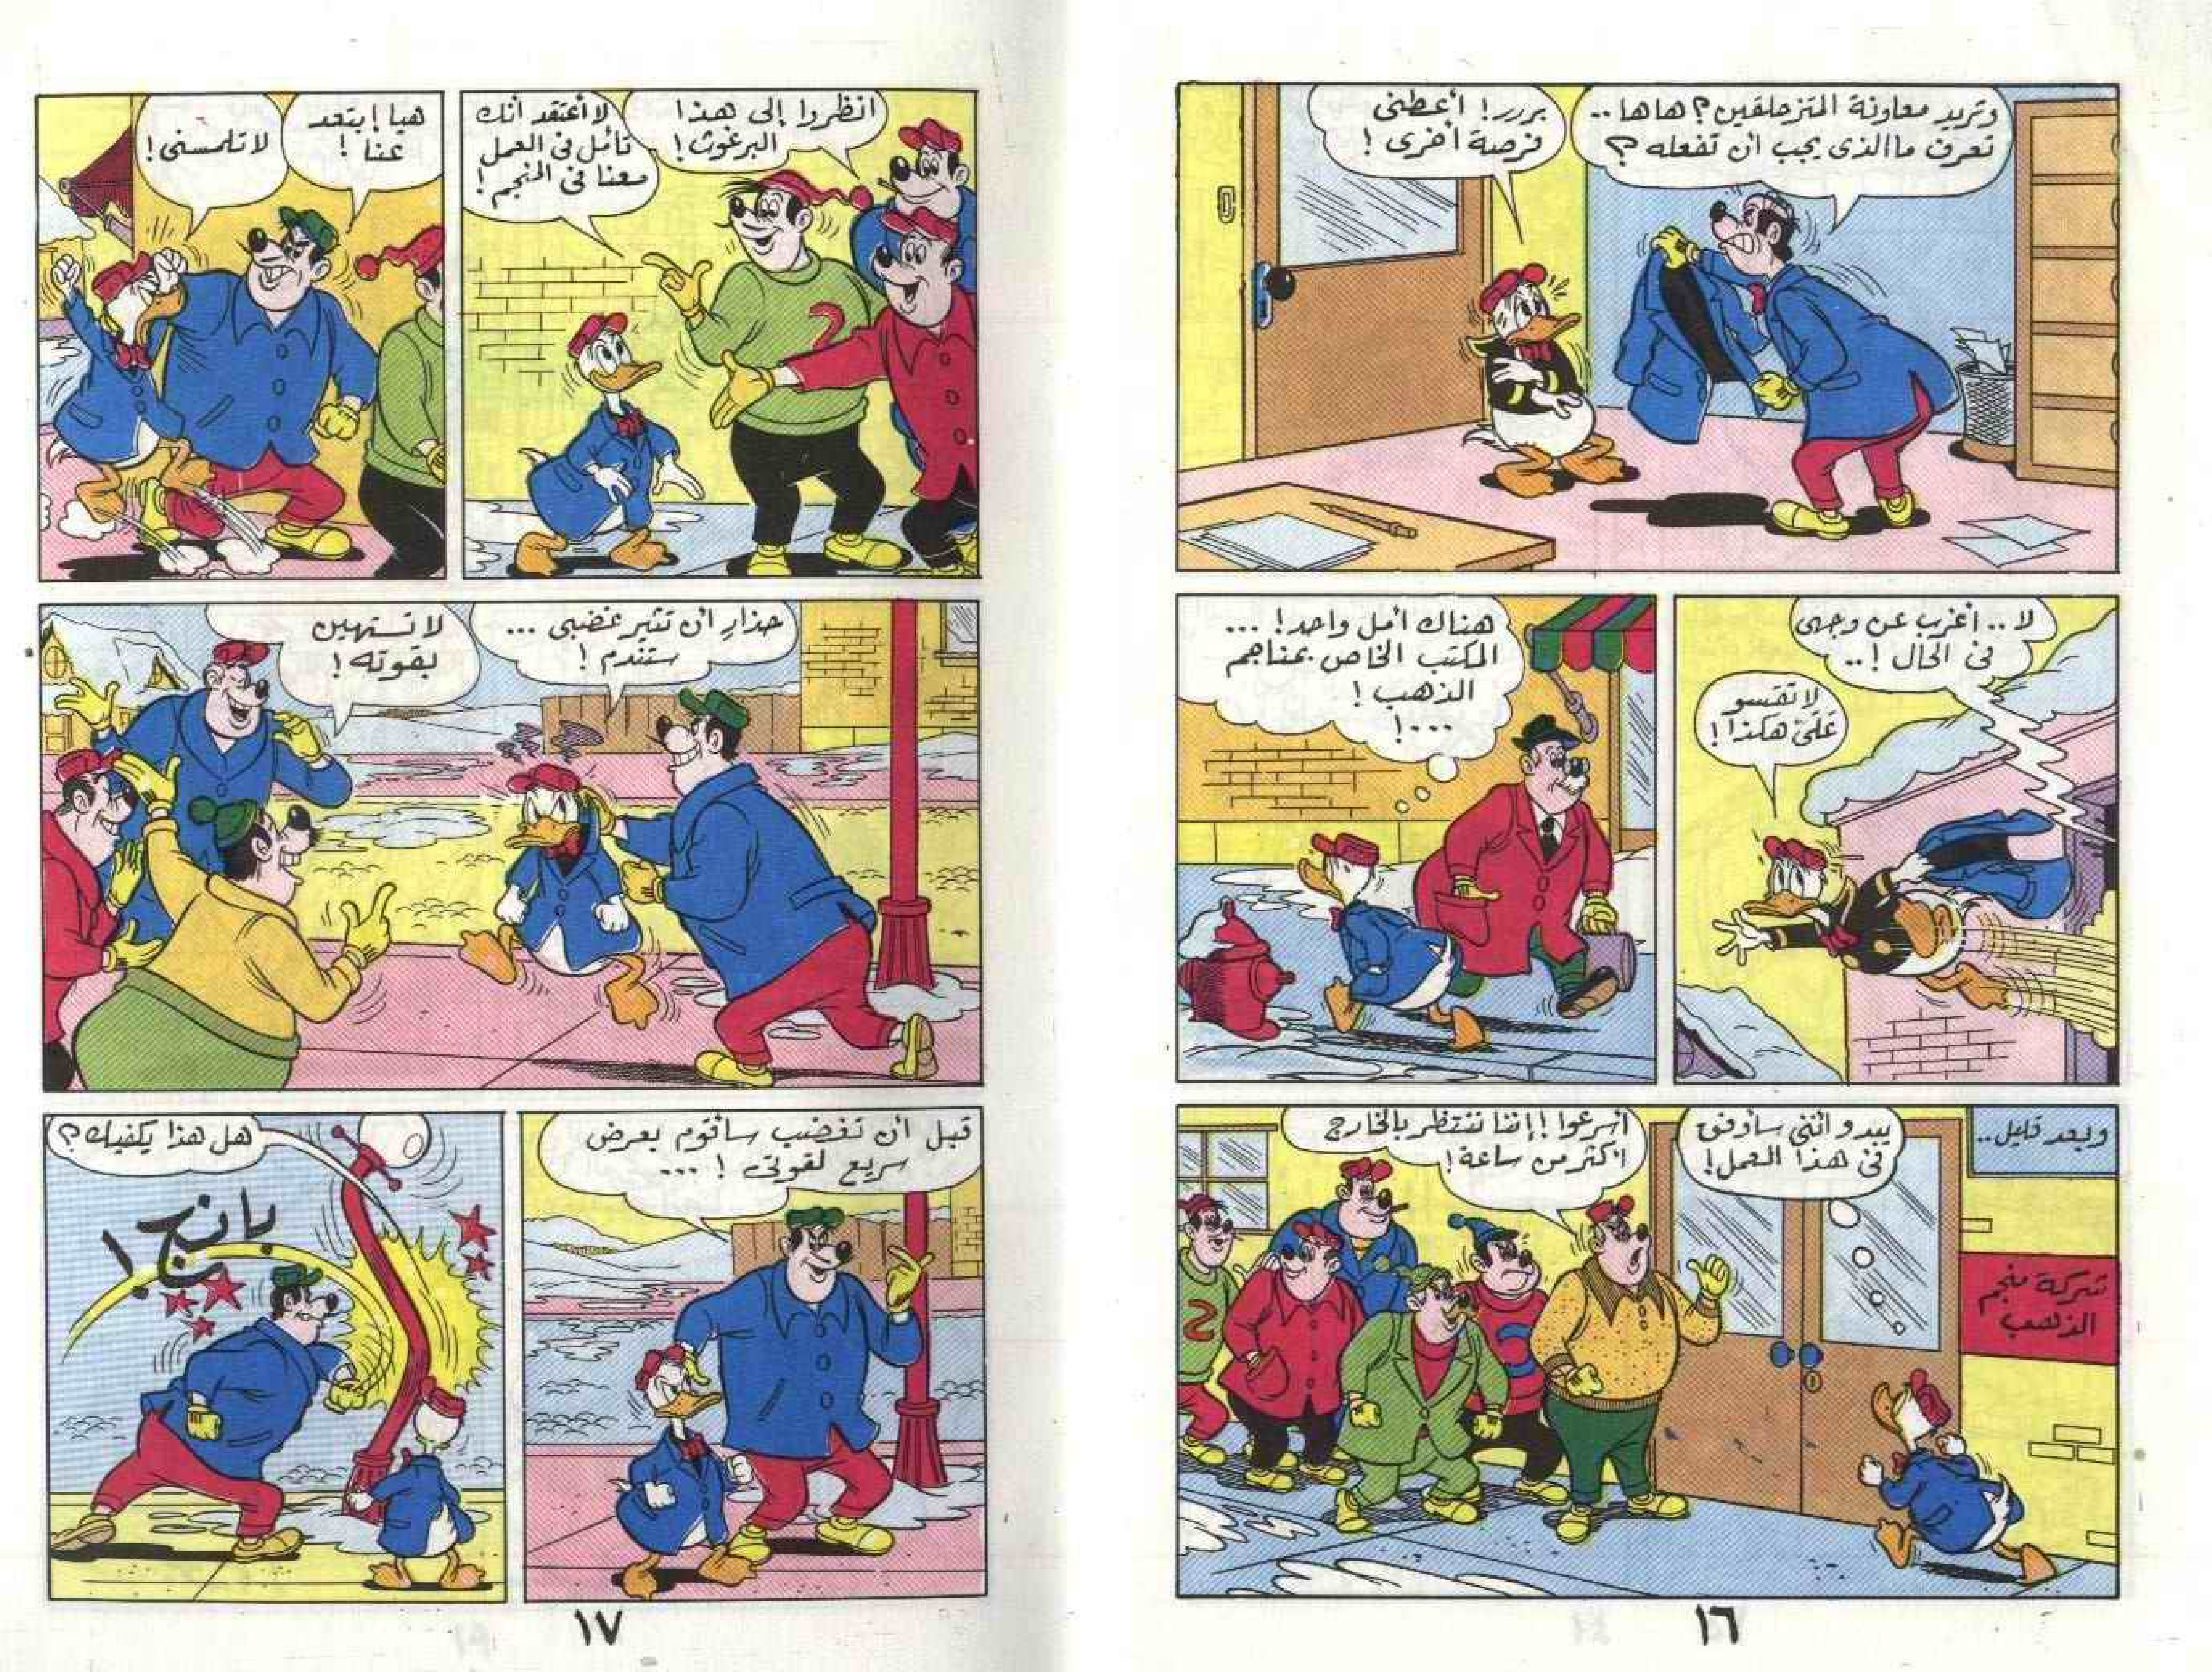 بررر! أعطنى
فرصة أخرى!
وتريد معاونة المتزحلقين؟ هاها..
تعرف ما الذى يجب أن تفعله؟
لا.. أغرب عن وجهى
فى الحال!..
لا تقسو
عَلَىّ هكذا!
هناك أمل واحد!...
المكتب الخاص بمناجم
الذهب!
...!
وبعد قليل..
يبدو أننى سأوفق
فى هذا العمل!
أسرعوا! إننا ننتظر بالخارج
أكثر من ساعة!
شركة منجم
الذهب
١٦
انظروا إلى هذا
البرغوث!
لا أعتقد أنك
تأمل فى العمل
معنا فى المنجم!
هيا! إبتعد
عنا!
لا تلمسنى!
حذارِ أن تثير غضبى...
ستندم!
لا تستهين
بقوته!
قبل أن تغضب سأقوم بعرض
سريع لقوتى!...
هل هذا يكفيك؟
بانج!
١٧